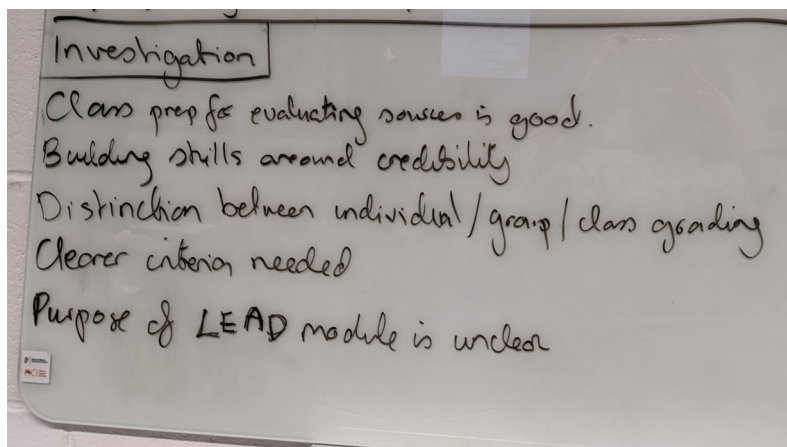 Investigation
Class prep for evaluating sources is good.
Building skills around credibility
Distinction between individual/group/class grading
Clearer criteria needed
Purpose of LEAD module is unclear